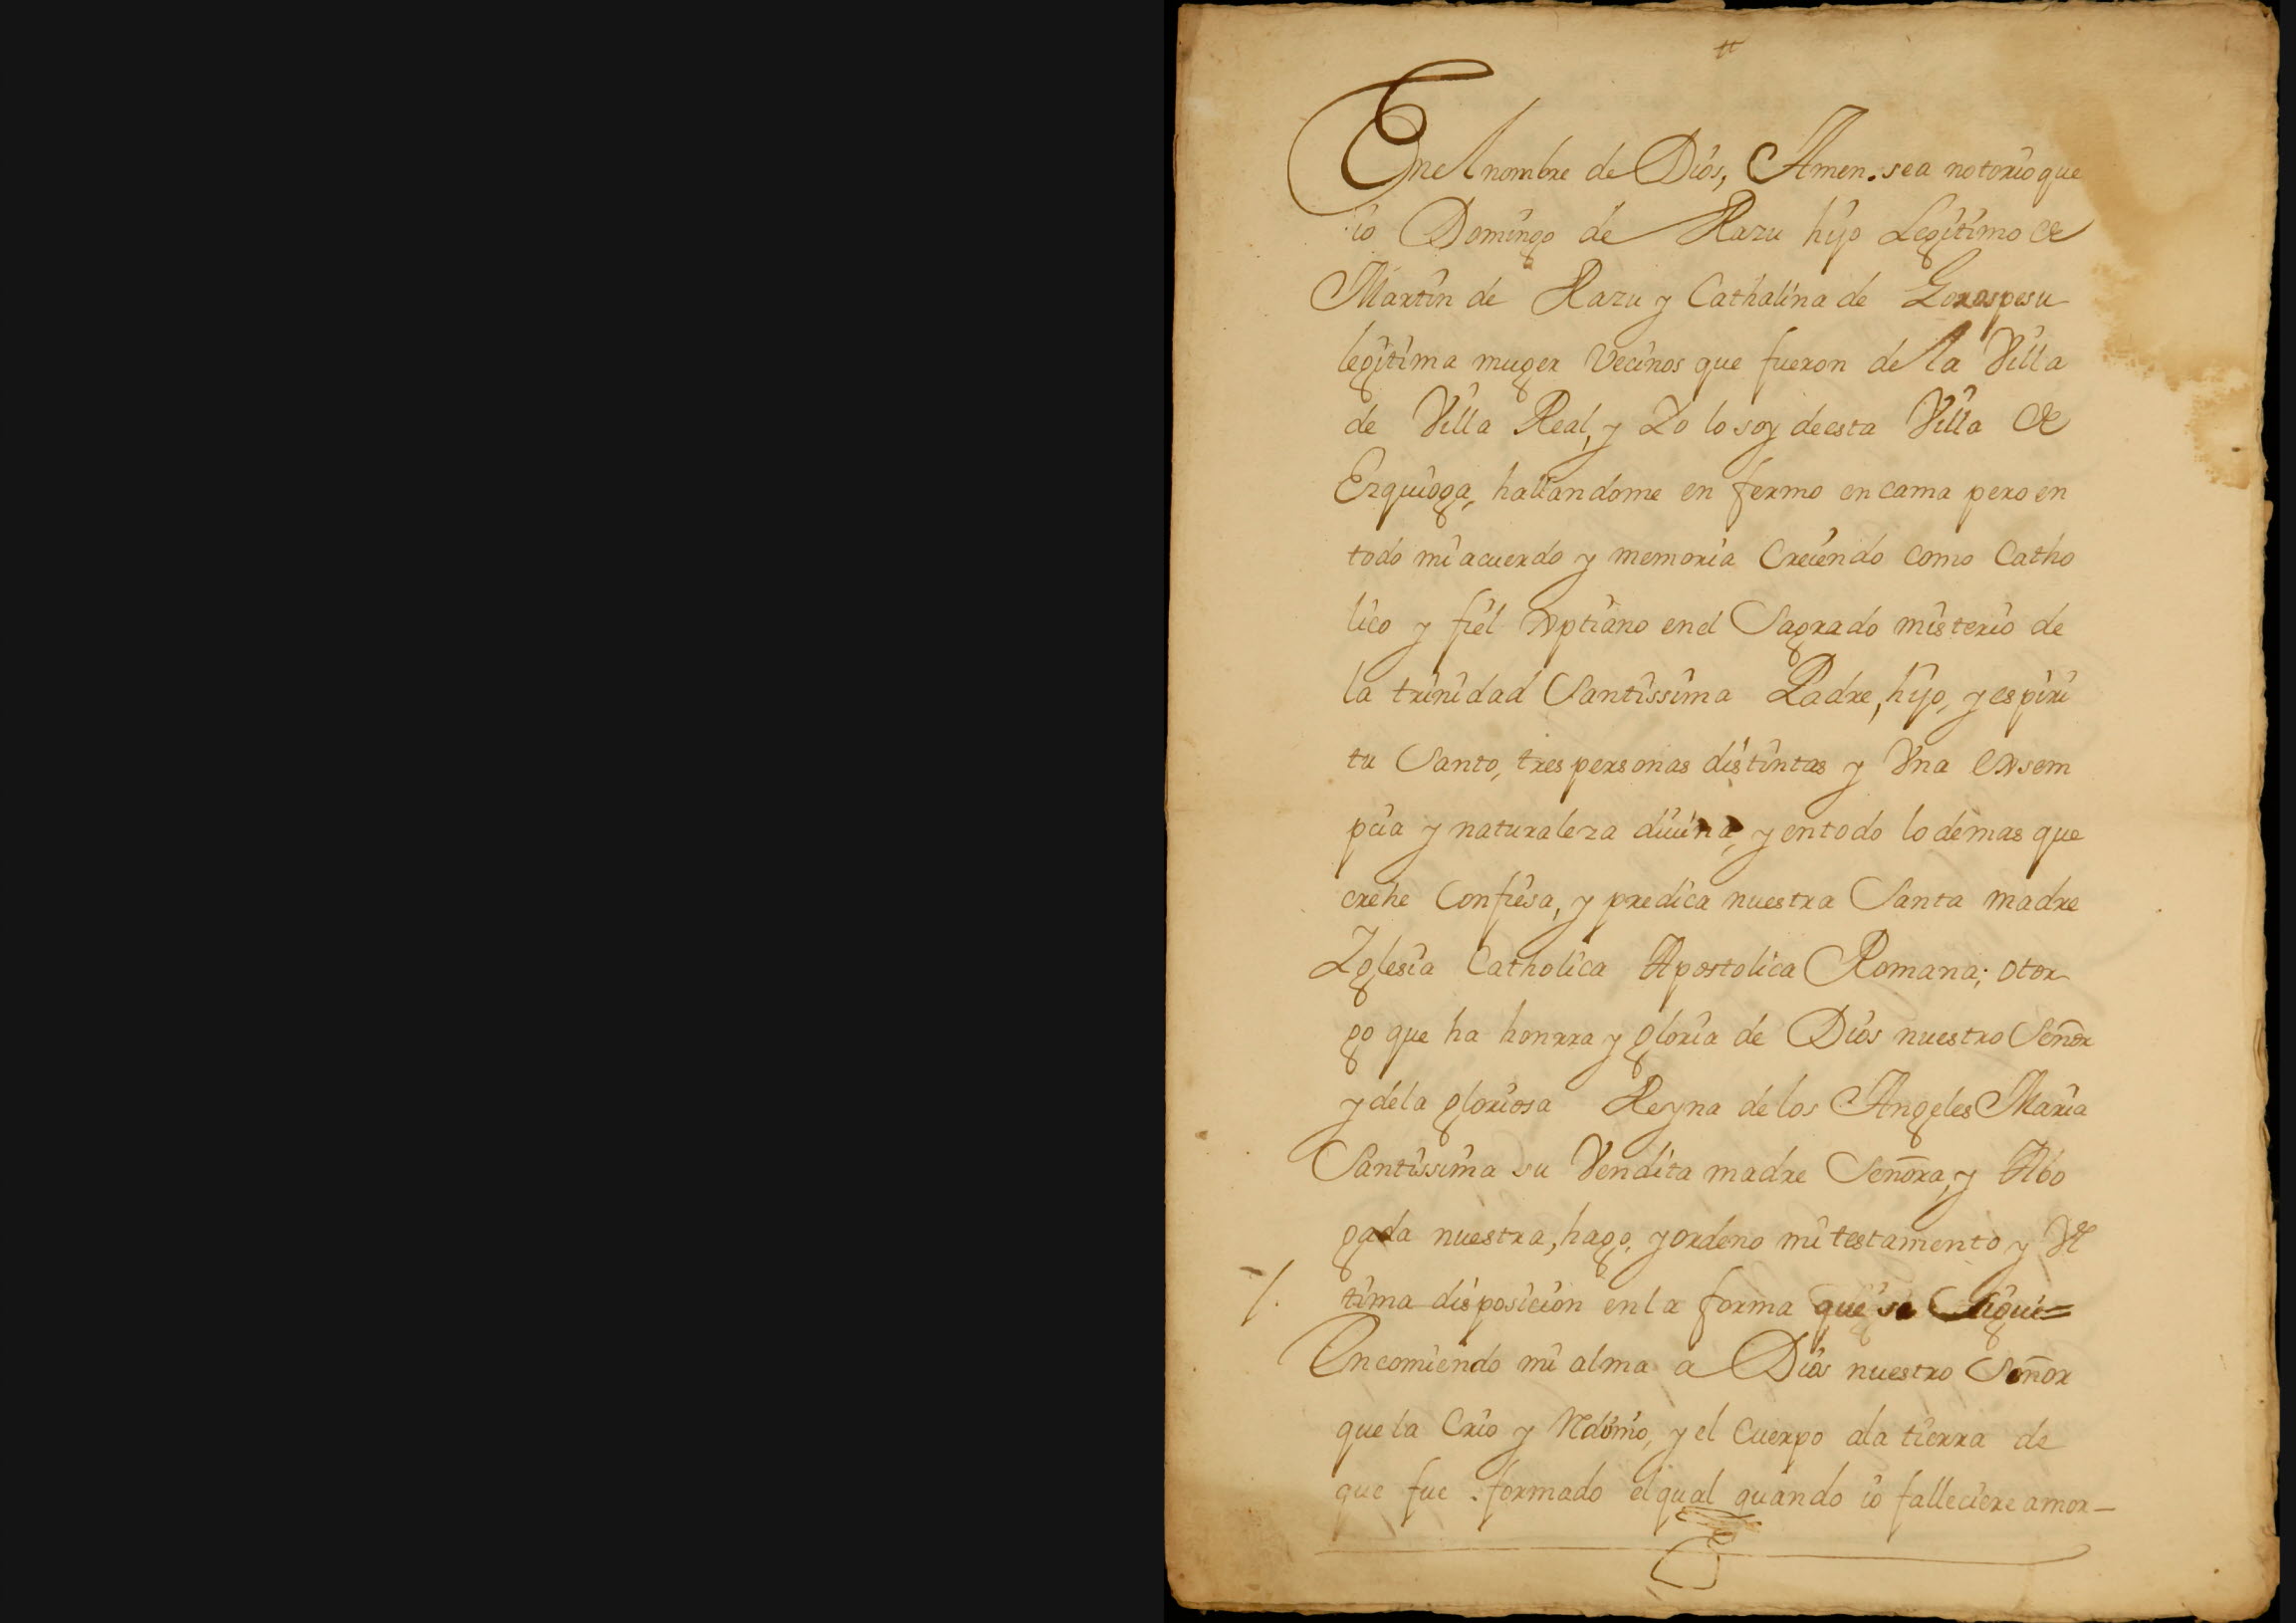 En el nombre de Dios, Amen. sea notorio que
io Domingo de Razu hijo Legitimo de
Martin de Razu y Cathalina de Goraspe su
legitima muger Vecinos que fueron de la Villa
de Villa Real, y Yo lo soy de esta Villa de
Ezquioga, hallandome en fermo en cama pero en
todo mi acuerdo y memoria Creiendo como Catho
lico y fiel Xptiano en el Sagrado misterio de
la trinidad Santissima Padre, hijo, y espiri
tu Santo, tres personas distintas y Vna
y naturaleza diuina, y en todo lo demas que
crehe Confiesa, y predica nuestra Santa madre
Yglesia Catholica Apostolica Romana; otor
go que ha honrra y gloria de Dios nuestro Señor
y de la gloriosa Reyna de los Angeles Maria
Santissima su Vendita madre Señora, y Abo
gada nuestra, hago, y ordeno mi testamento y Vl
1. tima disposicion en la forma que se Sigue=
Encomiendo mi alma a Dios nuestro Señor
que la Crio y Rdimio, y el Cuerpo ala tierra de
que fue formado el qual quando io falleciere amor-